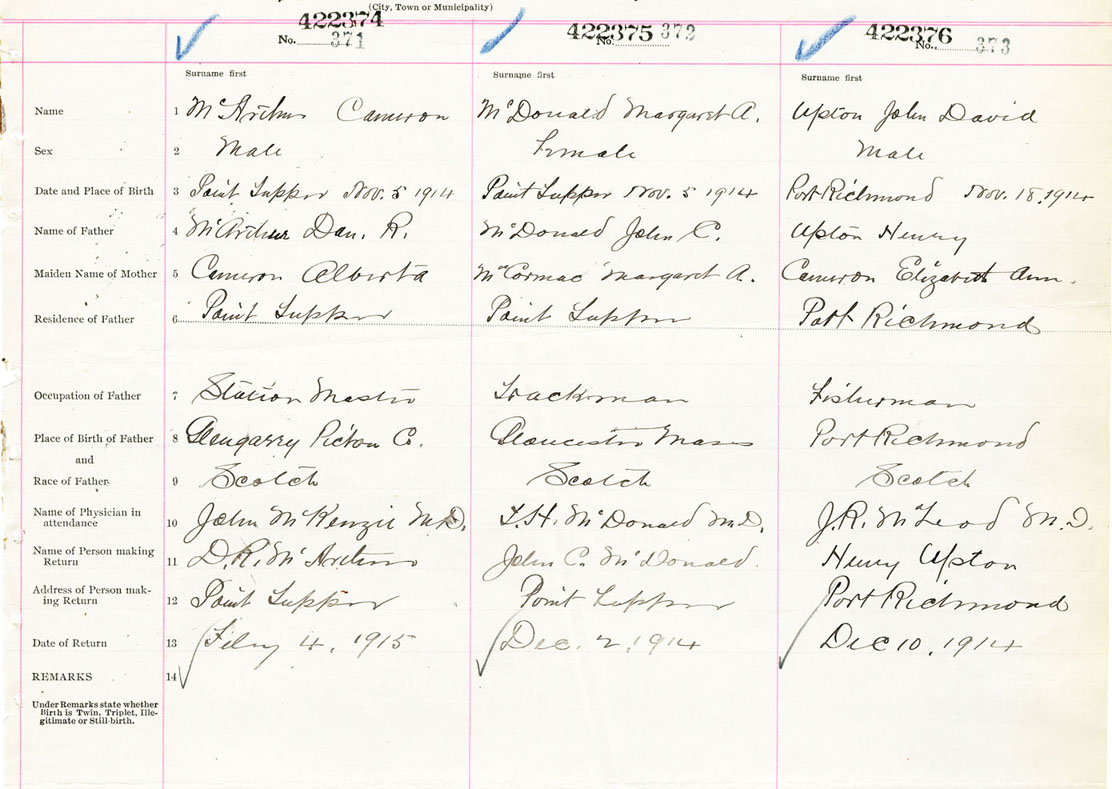 (City, Town or Municipality)
422374 422375 422376
No. 371 No. 372 No. 373
Surname first Surname first Surname first
Name 1 McArthur Cameron McDonald Margaret A. Upton John David
Sex 2 Male Female Male
Date and Place of Birth 3 Point Tupper Nov. 5 1914 Point Tupper Nov. 5 1914 Port Richmond Nov. 18, 1914
Name of Father 4 McArthur Dan. R. McDonald John C. Upton Henry
Maiden Name of Mother 5 Cameron Alberta McCormac Margaret A. Cameron Elizabeth Ann.
Residence of Father 6 Point Tupper Point Tupper Port Richmond
Occupation of Father 7 Station Master Trackman Fisherman
Place of Birth of Father 8 Glengarry Pictou Co. Gloucester Mass Port Richmond
and
Race of Father 9 Scotch Scotch Scotch
Name of Physician in
attendance 10 John McKenzie M.D. McDonald M.D. J.R. McLeod M.D.
Name of Person making
Return 11 D.R. McArthur John C. McDonald. Henry Upton
Address of Person mak-
ing Return 12 Point Tupper Point Tupper Port Richmond
Date of Return 13 Feby 4, 1915 Dec. 2, 1914 Dec 10, 1914
REMARKS 14
Under Remarks state whether
Birth is Twin, Triplet, Ille-
gitimate or Still-birth.